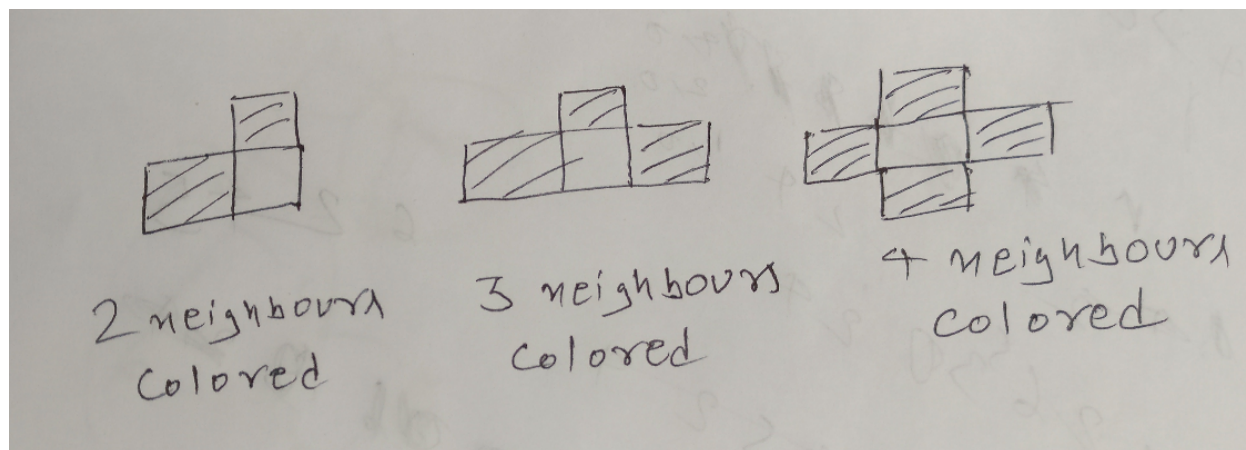 2 neighbours
colored
3 neighbours
colored
4 neighbours
colored